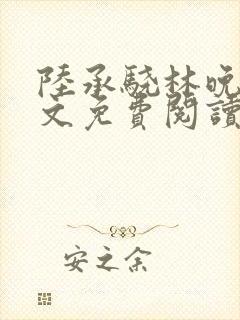 陸承驍林晚
文免費閱讀
安之余